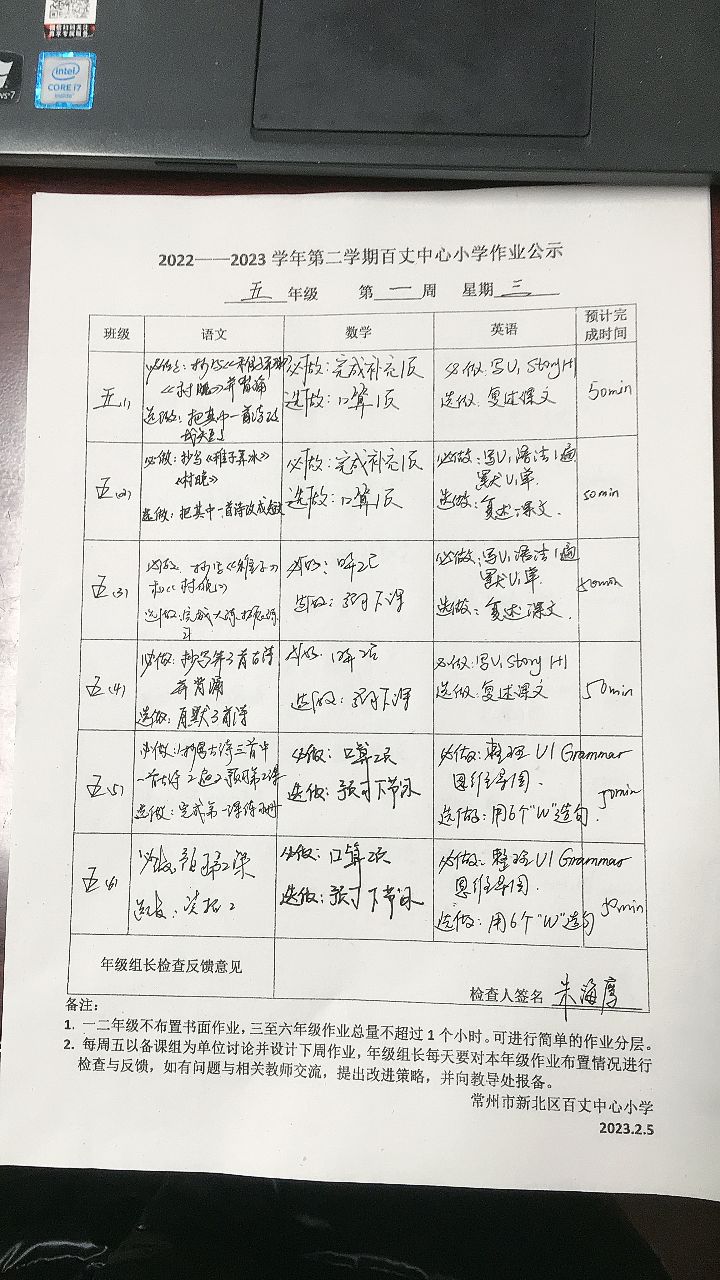 intel
CORE i7
inside
2022——2023 学年第二学期百丈中心小学作业公示
五 年级 第 一 周 星期 三
班级 语文 数学 英语 预计完成时间
五(1)
《村晚》并背诵
选做：把其中一首诗改
必做：完成补充1页
选做：口算1页
必做：写U1 Story H1
选做：复述课文
50min
五(2)
必做：抄写《稚子弄冰》
《村晚》
选做：把其中一首诗改成短文
必做：完成补充1页
选做：口算1页
必做：写U1语法1遍
默U1单.
选做：复述课文.
50min
五(3)
选做：完成大练
选做：预习下课
必做：写U1语法1遍
默U1单.
选做：复述课文.
50min
五(4)
必做：抄写第3首古诗
并背诵
选做：默3首诗
选做：预习下课
必做：写U1 Story H1
选做：复述课文
50min
五(5)
选做：完成第一课练习册
必做：口算2页
选做：预习下节课
必做：整理 U1 Grammar
思维导图.
选做：用6个"W"造句.
50min
五(6)
必做：口算2页
选做：预习下节课
必做：整理 U1 Grammar
思维导图.
选做：用6个"W"造句
50min
年级组长检查反馈意见
检查人签名 朱海
备注：
1. 一二年级不布置书面作业，三至六年级作业总量不超过 1 个小时。可进行简单的作业分层。
2. 每周五以备课组为单位讨论并设计下周作业，年级组长每天要对本年级作业布置情况进行
检查与反馈，如有问题与相关教师交流，提出改进策略，并向教导处报备。
常州市新北区百丈中心小学
2023.2.5